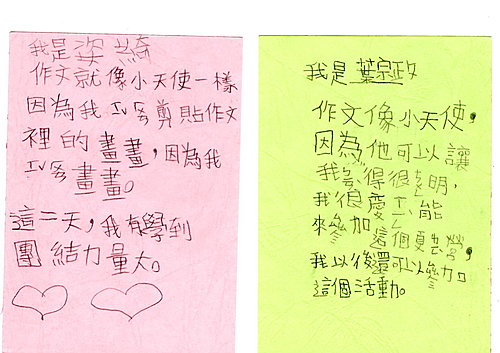 我是姿綺
作文就像小天使一樣
因為我ㄐㄩㄝˊ剪貼作文
裡的畫畫,因為我
畫畫。
這二天,我有學到
團結力量大。
我是葉宗政
作文像小天使,
因為他可以讓
我變得很ㄘㄨㄥ明,
我很慶ㄒㄧㄥˋ能
來參加這個夏令營,
我以後還可以參加
這個活動。